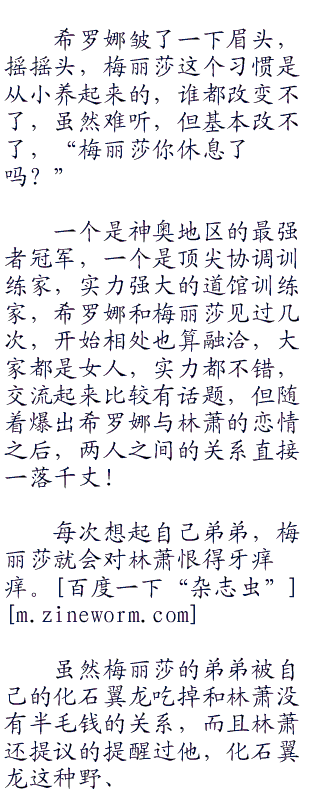 希罗娜皱了一下眉头，
摇摇头，梅丽莎这个习惯是
从小养起来的，谁都改变不
了，虽然难听，但基本改不
了，“梅丽莎你休息了
吗？”
一个是神奥地区的最强
者冠军，一个是顶尖协调训
练家，实力强大的道馆训练
家，希罗娜和梅丽莎见过几
次，开始相处也算融洽，大
家都是女人，实力都不错，
交流起来比较有话题，但随
着爆出希罗娜与林萧的恋情
之后，两人之间的关系直接
一落千丈！
每次想起自己弟弟，梅
丽莎就会对林萧恨得牙痒
痒。[百度一下“杂志虫”]
[m.zineworm.com]
虽然梅丽莎的弟弟被自
己的化石翼龙吃掉和林萧没
有半毛钱的关系，而且林萧
还提议的提醒过他，化石翼
龙这种野、